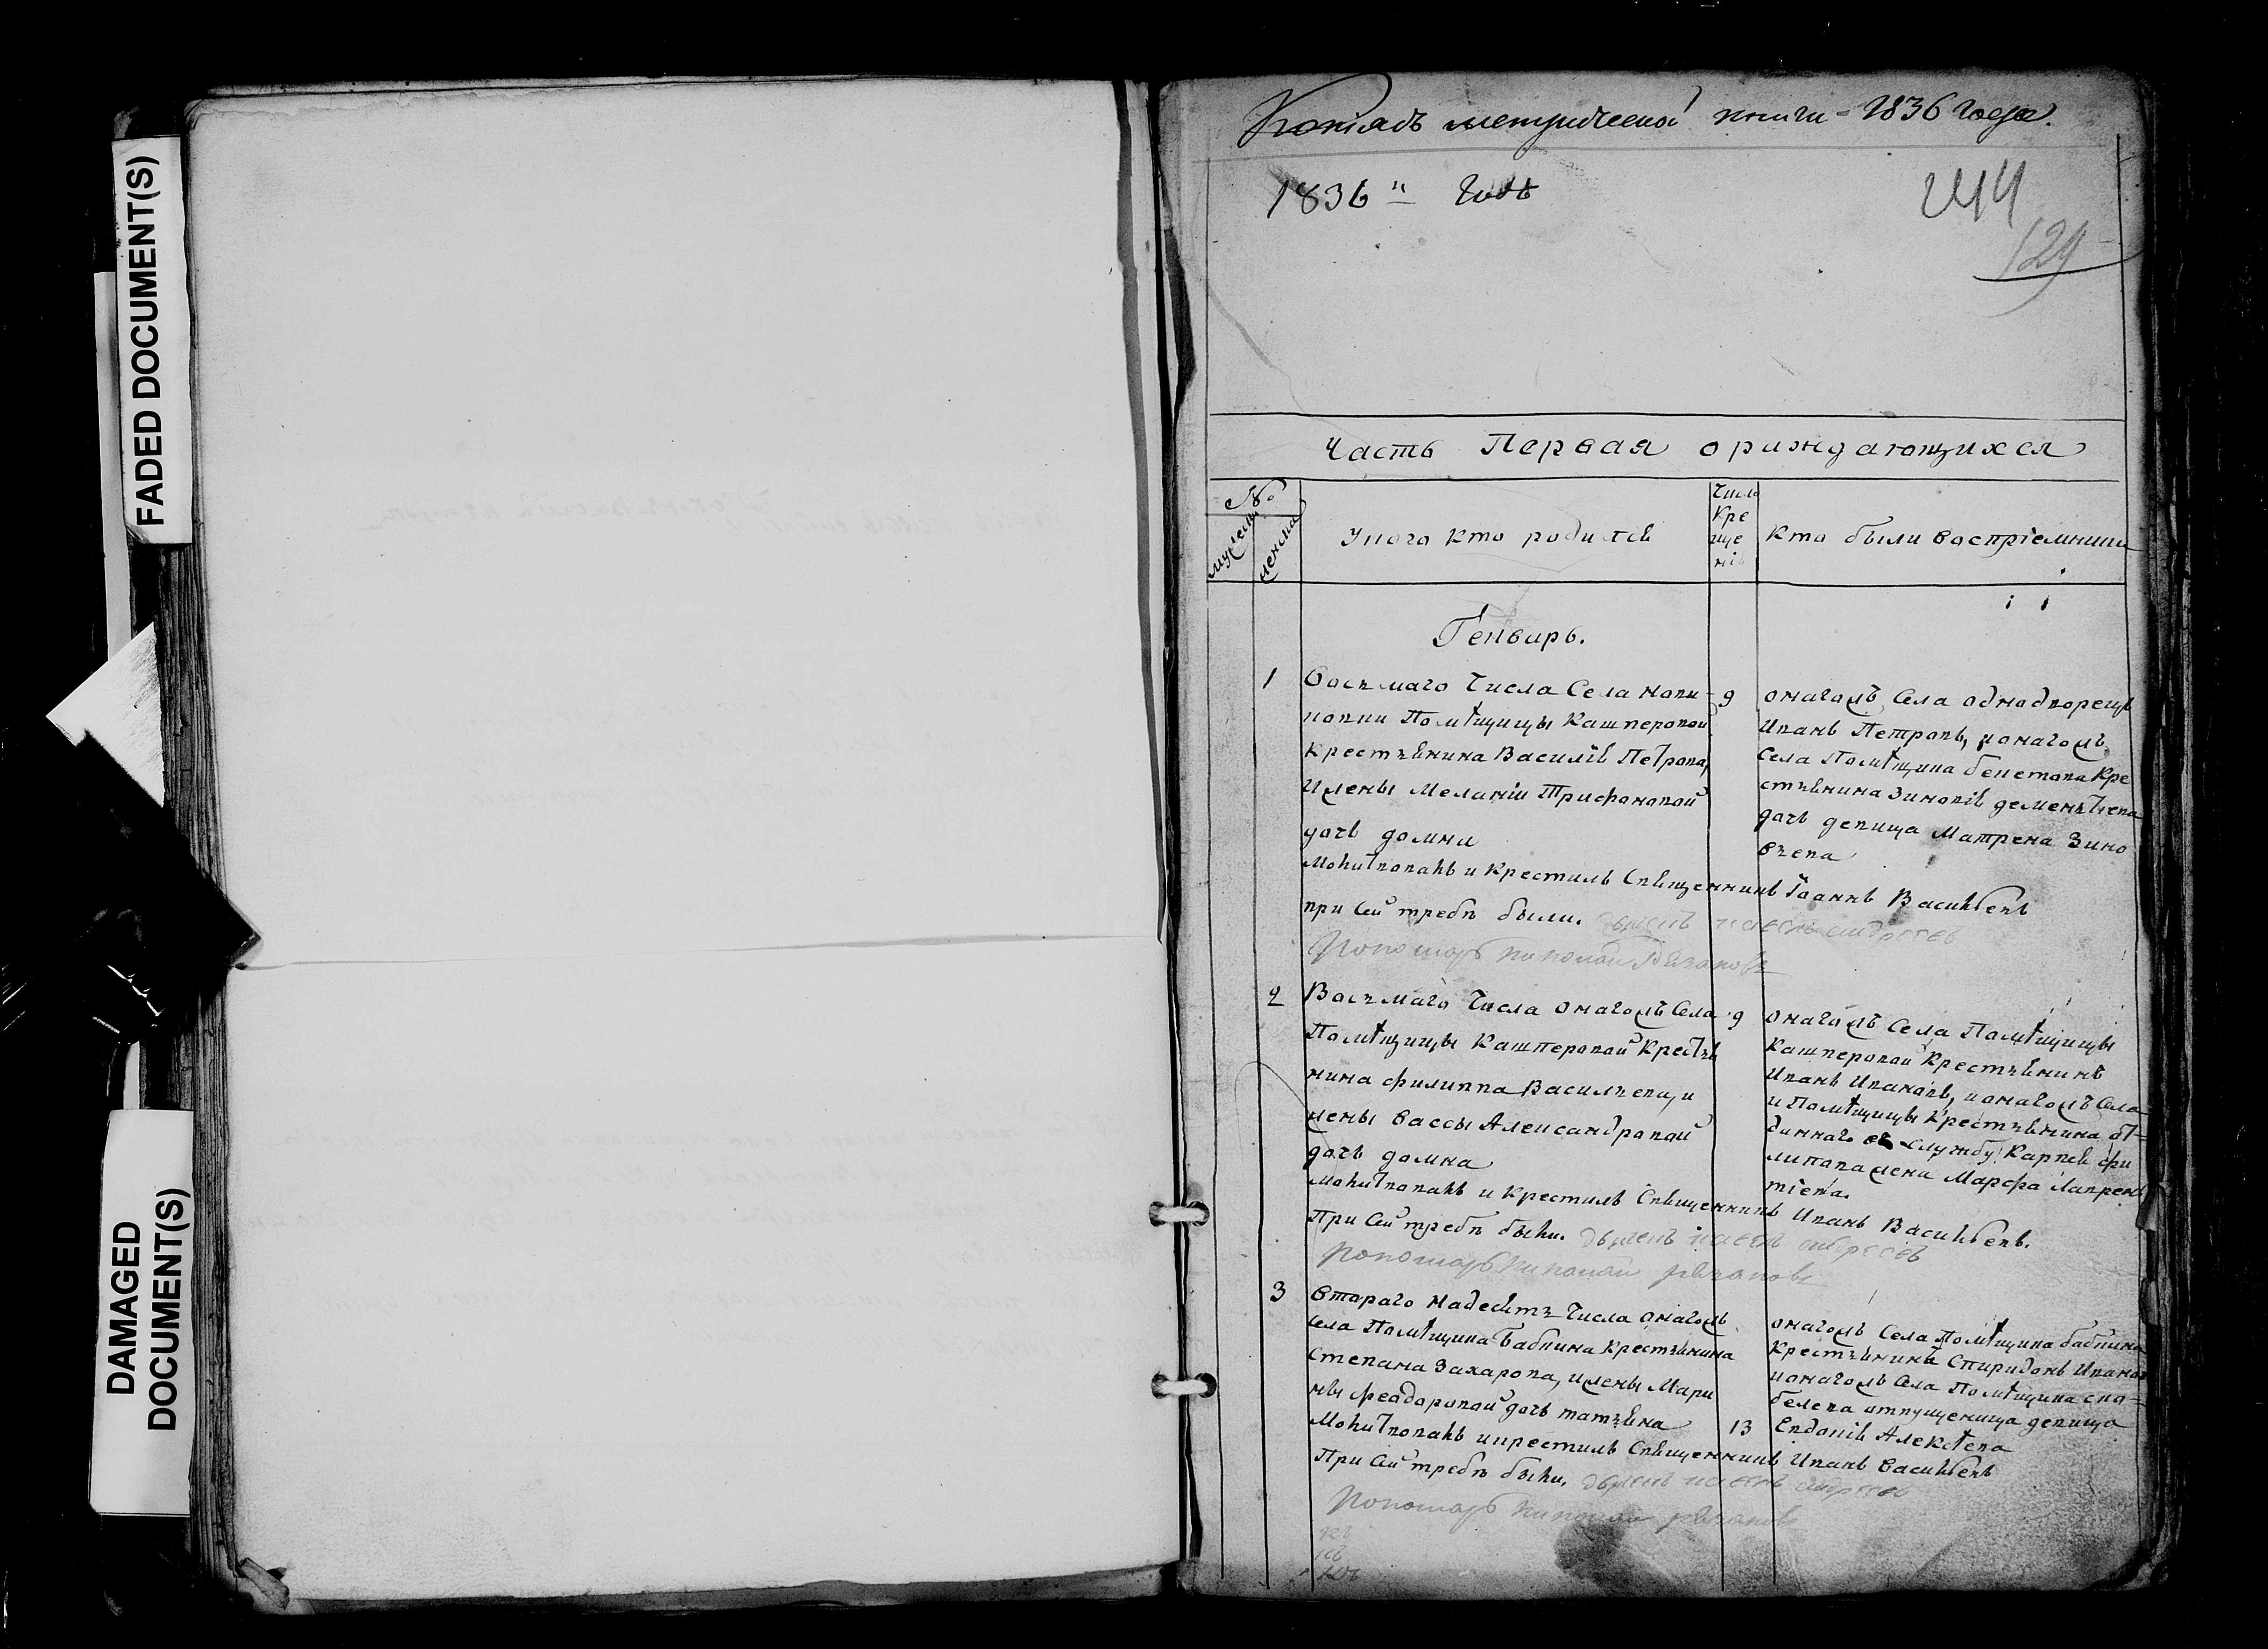 FADED DOCUMENT(S)
DAMAGED
DOCUMENT(S)
метрической книги 1836 года.
1836 й Годъ
244
129
Часть Первая о рождающихся
№
мужеск
женска
У кого кто родился
Число
Кре
ще
нія
Кто были воспріемники
Генварь.
1
Восьмаго Числа Села
Помѣщицы Кашперовой
Крестьянина Василія Петрова,
и жены Меланіи Трифоновой
дочь Домна
Молитвовалъ и Крестилъ Священникъ Іоаннъ Васильевъ
при сей требѣ были. дьяконъ андреевъ
Пономарь
9
онагожъ села однодворецъ
Иванъ Петровъ, и онагожъ
Села Помѣщика Кре
стьянина Зиновія Дементіева
дочь девица Матрена Зино
вьева
2
Восьмаго Числа онагожъ Села
Помѣщицы Кашперовой Крестья
нина Филиппа Васильева, и
жены Вассы Александровой
дочь Домна
Молитвовалъ и Крестилъ Священникъ Иванъ Васильевъ.
При сей требѣ были. дьяконъ андреевъ
Пономарь
9
онагожъ Села Помѣщицы
Кашперовой Крестьянинъ
Иванъ Ивановъ, и онагожъ Села
и Помѣщицы Крестьянина от
даннаго въ службу Карпа Фи
липова жена Марфа Лаврень
тіева.
3
Втораго надесять Числа онагожъ
села Помѣщика Бабкина Крестьянина
Степана Захарова, и жены Мари
ны Феодоровой дочь Татьяна
Молитвовалъ и крестилъ Священникъ Иванъ Васильевъ
При сей требѣ были. дьяконъ андреевъ
Пономарь
13
онагожъ Села Помѣщика Бабкина
Крестьянинъ Спиридонъ Иванов
и онагожъ Села Помѣщика Ско
белева отпущеница девица
Евдокія Алексѣева